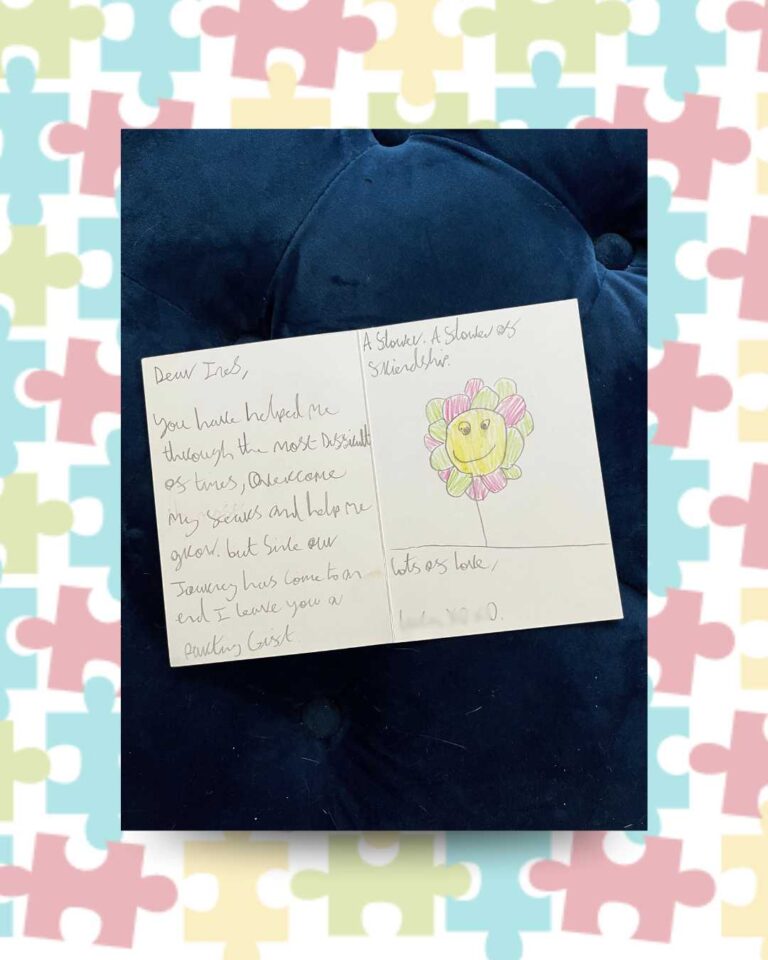 Dear Ines,
You have helped me
through the most Difficult
of times, Overcome
My fears and help me
grow. but Sinse our
Journey has come to an
end I leave you a
Parting Gift
A flower. A flower of
friendship.
lots of love,